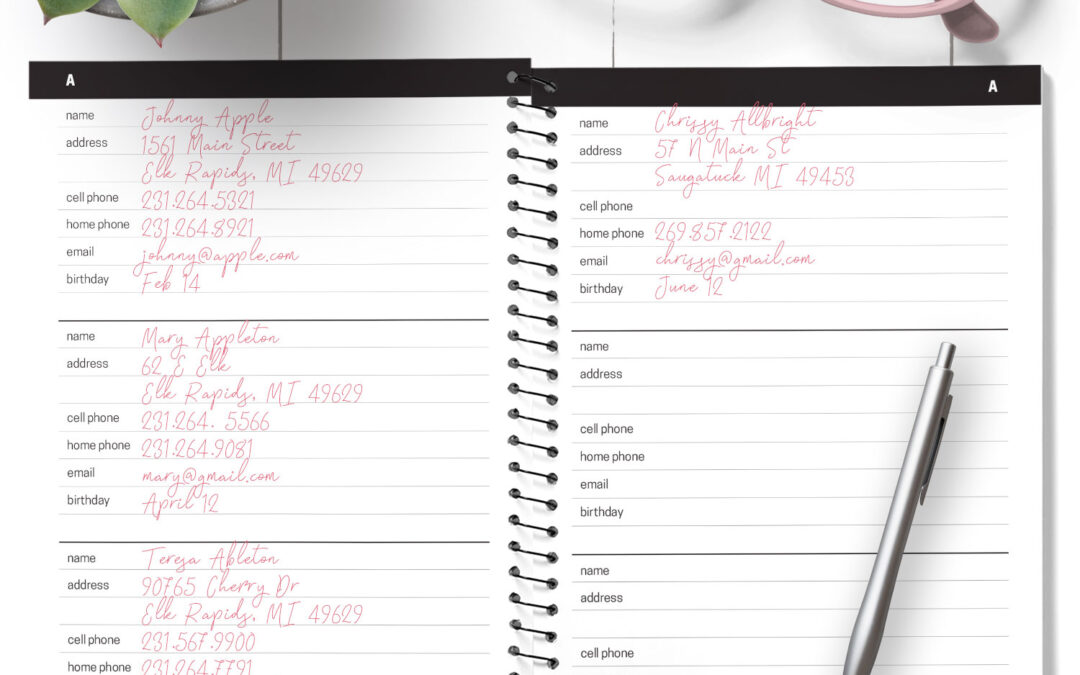 A
name Johnny Apple
address 1561 Main Street
Elk Rapids, MI 49629
cell phone 231.264.5321
home phone 231.264.8921
email johnny@apple.com
birthday Feb 14
name Mary Appleton
address 62 E Elk
Elk Rapids, MI 49629
cell phone 231.264. 5566
home phone 231.264.9081
email mary@gmail.com
birthday April 12
name Teresa Ableton
address 90765 Cherry Dr
Elk Rapids, MI 49629
cell phone 231.567.9900
home phone 231.264.7791
A
name Chrissy Allbright
address 57 N Main St
Saugatuck MI 49453
cell phone
home phone 269.857.2122
email chrissy@gmail.com
birthday June 12
name
address
cell phone
home phone
email
birthday
name
address
cell phone